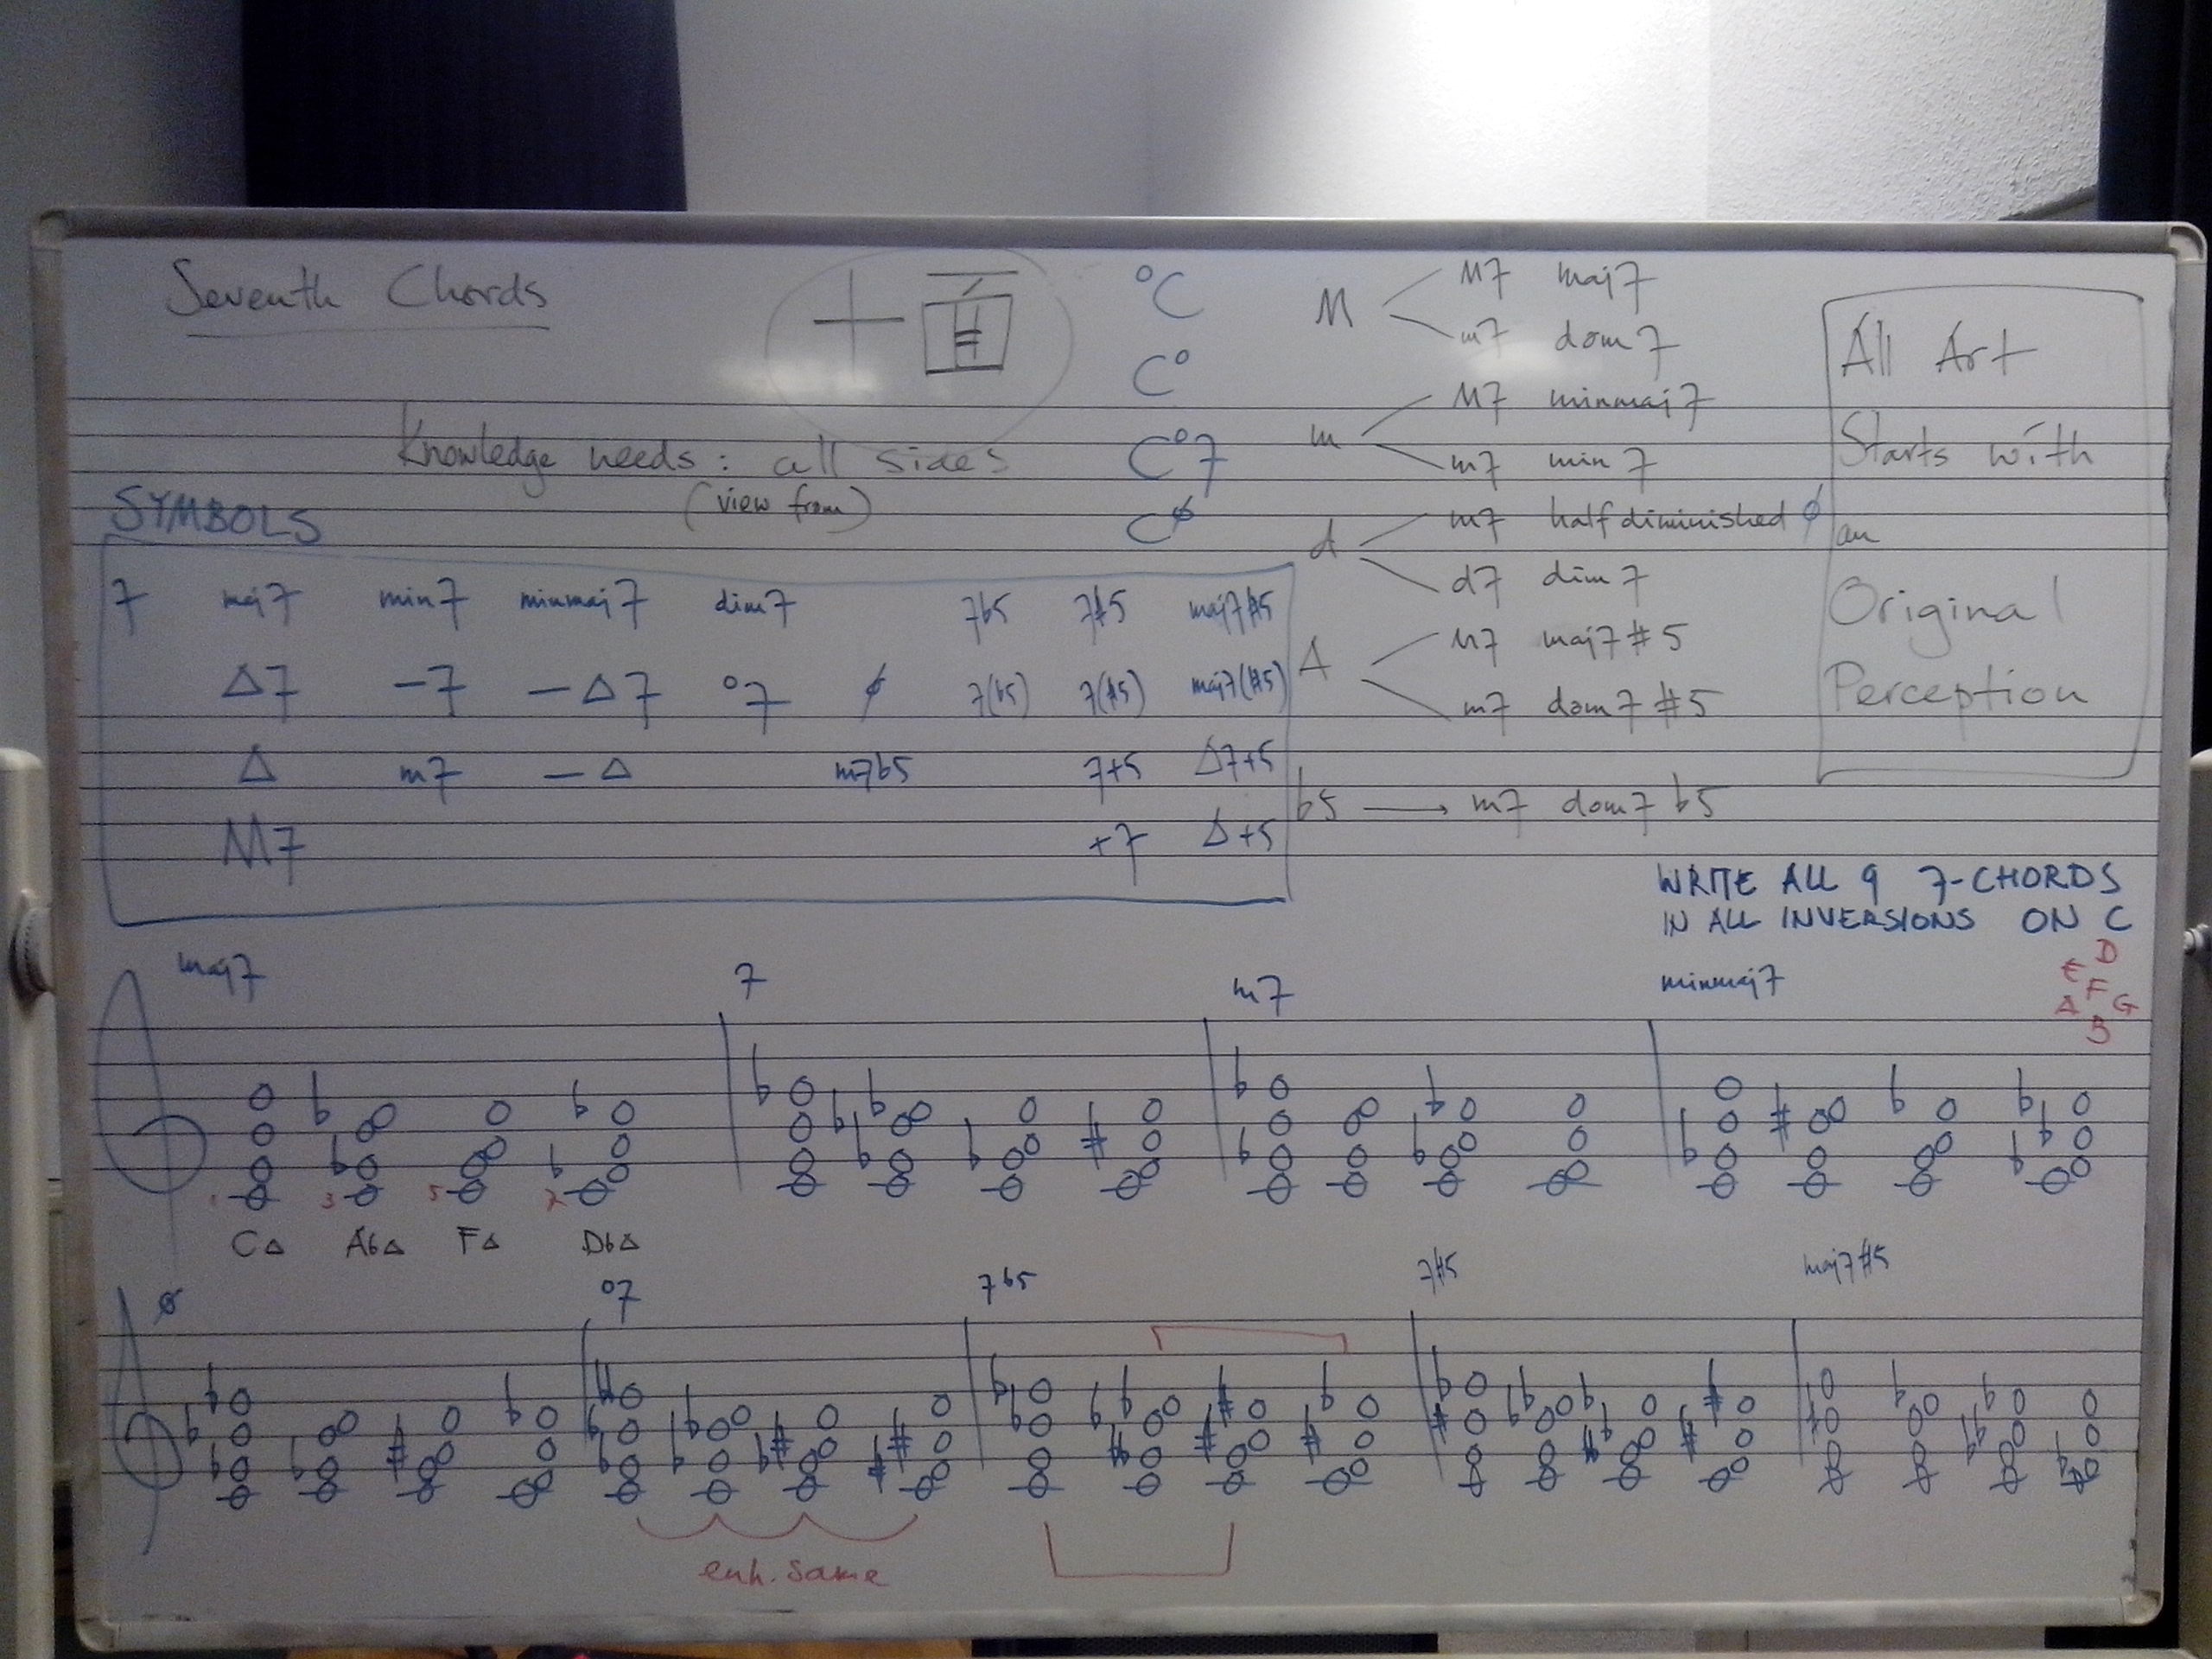 Seventh Chords
十面
Knowledge needs: all sides
(view from)
°C
C°
C°7
Cø
M
M7 maj7
m7 dom7
m
M7 minmaj7
m7 min7
d
m7 halfdiminished ø
d7 dim7
A
M7 maj7#5
m7 dom7#5
b5 → m7 dom7b5
All Art
Starts with
an
Original
Perception
SYMBOLS
7 maj7 min7 minmaj7 dim7 7b5 7#5 maj7#5
Δ7 −7 −Δ7 °7 ø 7(b5) 7(#5) maj7(#5)
Δ m7 −Δ m7b5 7+5 Δ7+5
M7 +7 Δ+5
WRITE ALL 9 7-CHORDS
IN ALL INVERSIONS ON C
D
E F
A G
B
maj7 7 m7 minmaj7
1 3 5 7
CΔ AbΔ FΔ DbΔ
ø °7 7b5 7#5 maj7#5
enh. same